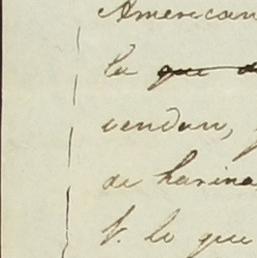 American
la que d
vendan,
de harina
V. lo que